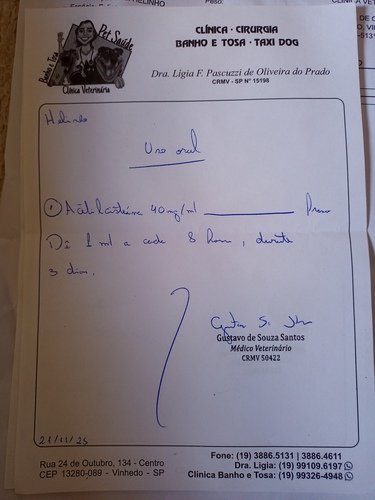 Peso:
Pet Saúde
Banho e Tosa
Clínica Veterinária
CLÍNICA · CIRURGIA
BANHO E TOSA · TAXI DOG
Dra. Ligia F. Pascuzzi de Oliveira do Prado
CRMV - SP N° 15198
Uso oral
① 40 mg/ml
Dê 1 ml a cada 8 horas, durante
3 dias.
Gustavo de Souza Santos
Médico Veterinário
CRMV 50422
21/11/25
Rua 24 de Outubro, 134 - Centro
CEP 13280-089 - Vinhedo - SP
Fone: (19) 3886.5131 | 3886.4611
Dra. Ligia: (19) 99109.6197
Clínica Banho e Tosa: (19) 99326-4948